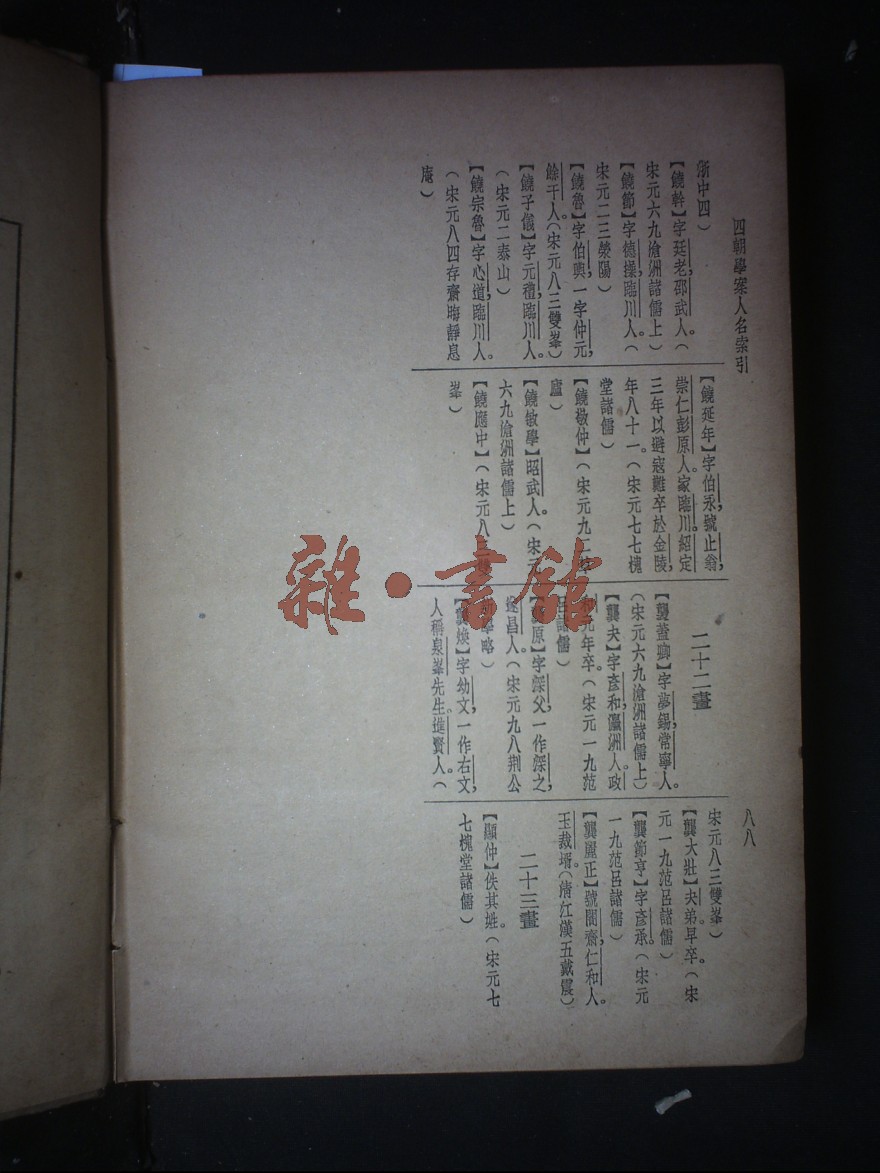 四朝學案人名索引
八八
浙中四）
【饒幹】字廷老，邵武人。（
宋元六九滄洲諸儒上）
【饒節】字德操，臨川人。（
宋元二三滎陽）
【饒魯】字伯輿，一字仲元，
餘干人。（宋元八三雙峯）
【饒子儀】字元禮，臨川人。
（宋元二泰山）
【饒宗魯】字心道，臨川人。
（宋元八四存齋晦靜息
庵）
【饒延年】字伯永，號止翁，
崇仁彭原人。家臨川。紹定
三年以避寇難卒於金陵，
年八十一。（宋元七七槐
堂諸儒）
【饒敬仲】（宋元九二草
廬）
【饒敏學】昭武人。（宋元
六九滄洲諸儒上）
【饒應中】（宋元八三雙
峯）
二十二畫
【龔蓋卿】字夢錫，常寧人。
（宋元六九滄洲諸儒上）
【龔夬】字彥和，瀛洲人。政
和元年卒。（宋元一九范
呂諸儒）
【龔原】字深父，一作深之，
遂昌人。（宋元九八荊公
新學略）
【龔煥】字幼文，一作右文，
人稱泉峯先生。進賢人。（
宋元八三雙峯）
【龔大壯】夬弟。早卒。（宋
元一九范呂諸儒）
【龔節亨】字彥承。（宋元
一九范呂諸儒）
【龔麗正】號闇齋，仁和人。
玉裁壻。（清江漢五戴震）
二十三畫
【顯仲】佚其姓。（宋元七
七槐堂諸儒）
雜·書館